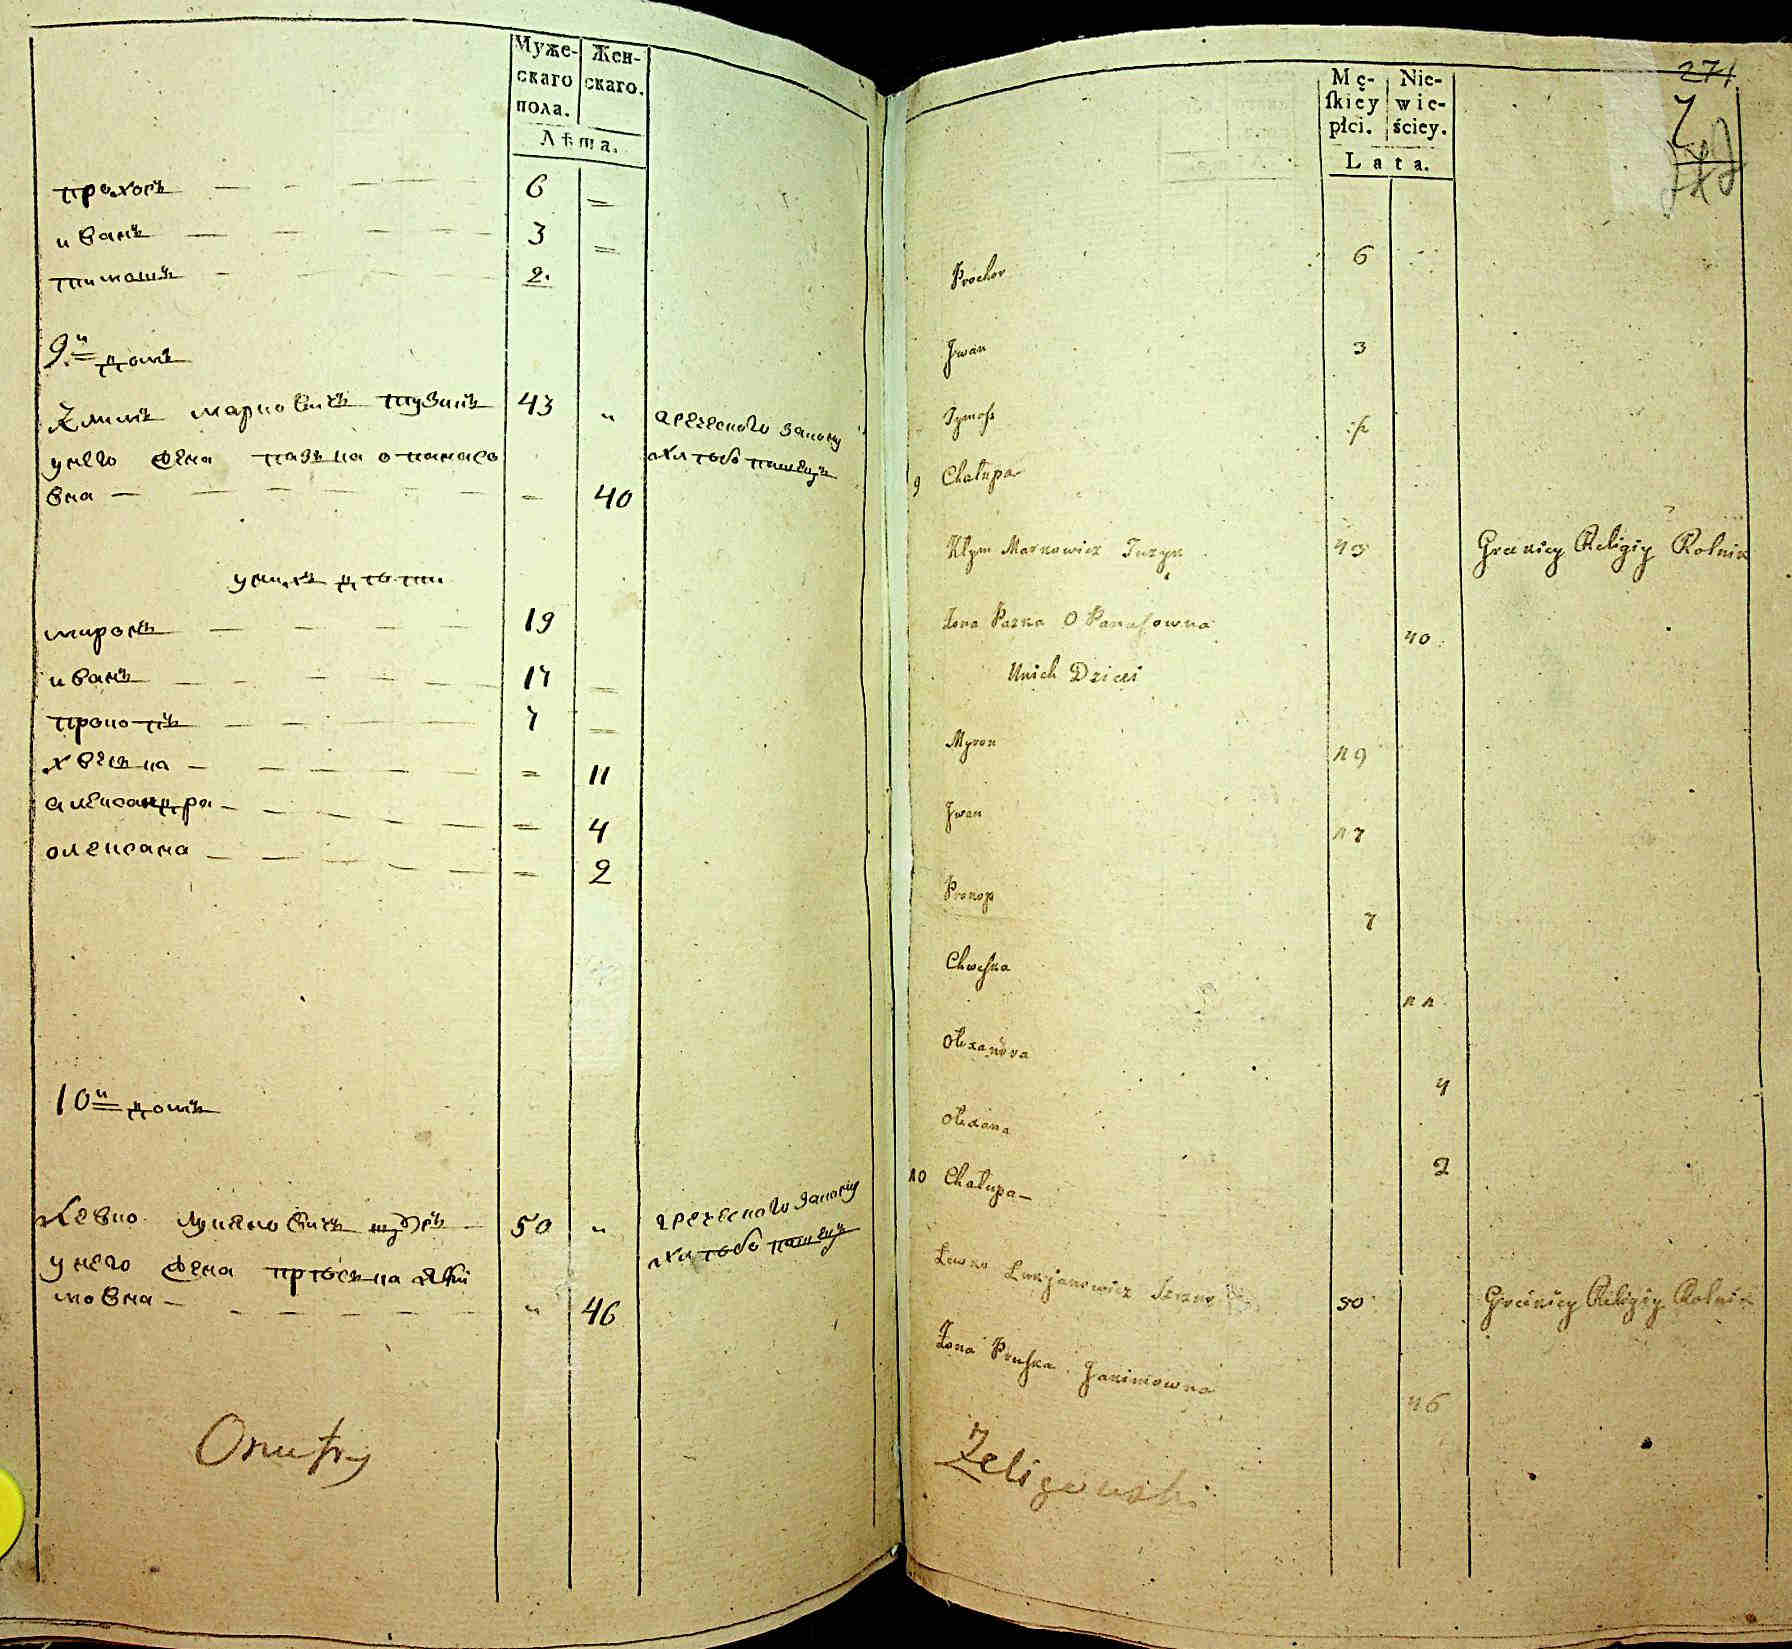 Муже-
скаго
пола.
Жен-
скаго.
Лѣта.
прохоръ 6
иванъ 3
тимошъ 2.
9.й домъ
Климъ марковичъ тузинъ 43 " греческого закону
унего жена пазька опанасо хлѣбо пашецъ
вна 40
унихъ дѣти
миронъ 19
иванъ 17
прокопъ 7
хвеська 11
александра 4
олексана 2
10й домъ
Левко лукяновичъ 50 " греческого закону
унего жена прѣська Яки хлѣбо пашецъ
мовна " 46
Onufry
271
Mę-
ſkiey
płci.
Nie-
wie-
ściey.
Lata.
Prochor 6
Jwan 3
Tymoſz
9 Chałupa
Kłym Markowicz Tuzyn 43 Greckiey Religiy Rolnik
Żona Pazka O Panaſowna 40
Unich Dzieci
Myron 19
Jwan 17
Prokop 7
Chweſka 11
Olexandra 4
Olexana 2
10 Chałupa
Lewko Łukjanowicz 50 Greckiey Religiy Rolnik
Żona Pruſka Jakimowna 46
Żeligowski